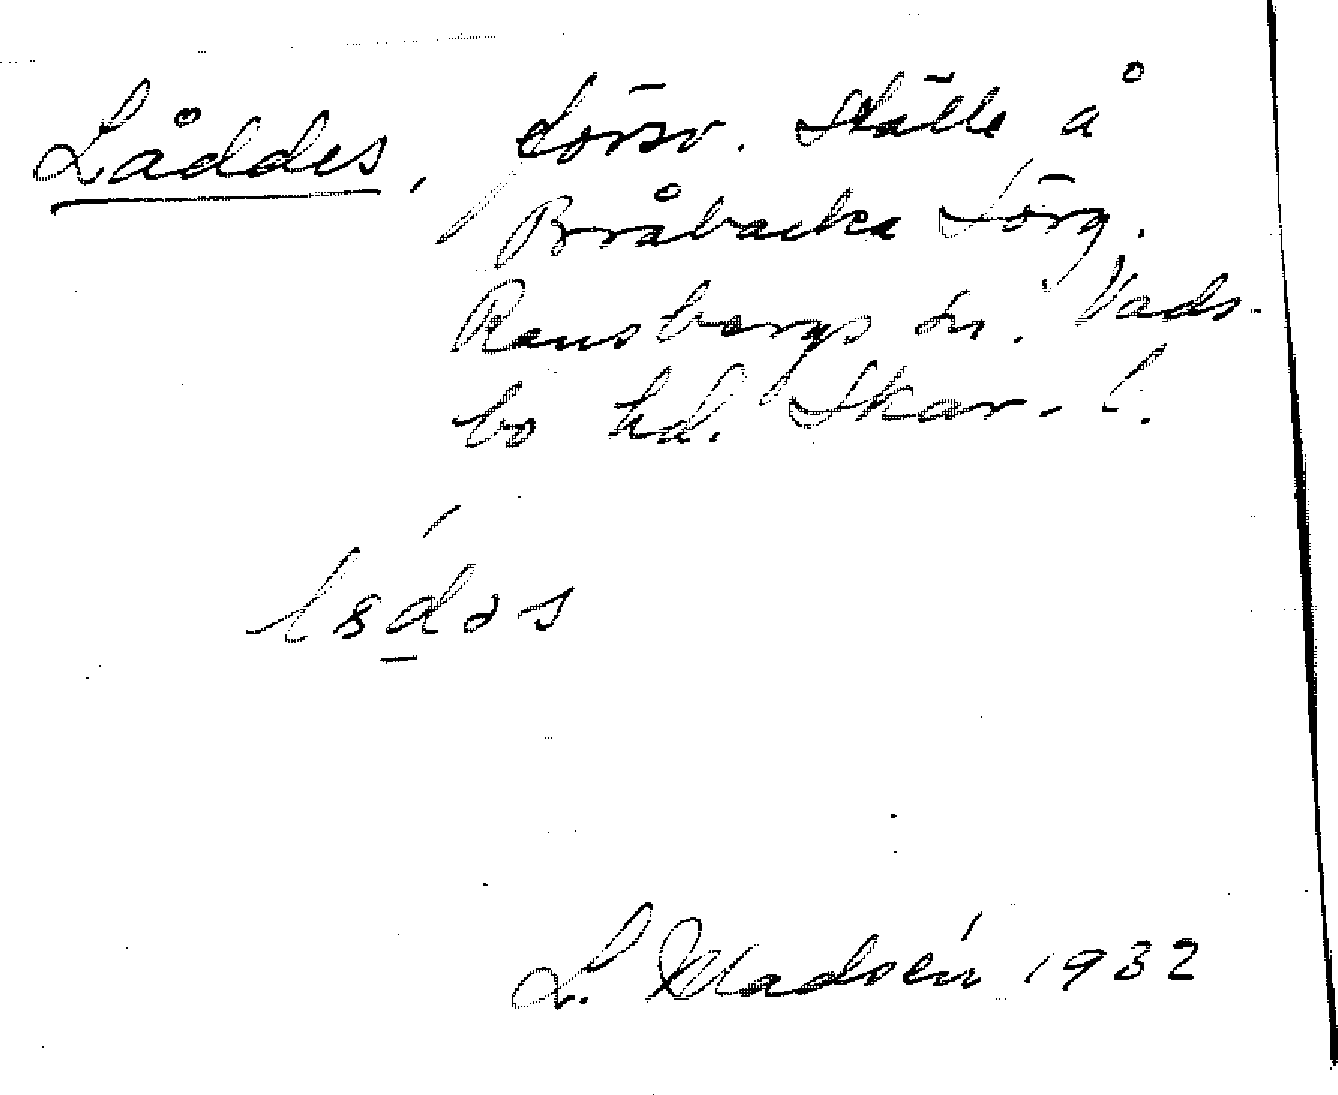 Låddes, försv. Ställe å
Bråbacka Sörg.
Ransbergs sn. Vads-
bo hd. Skar. l.
L. Madsén 1932